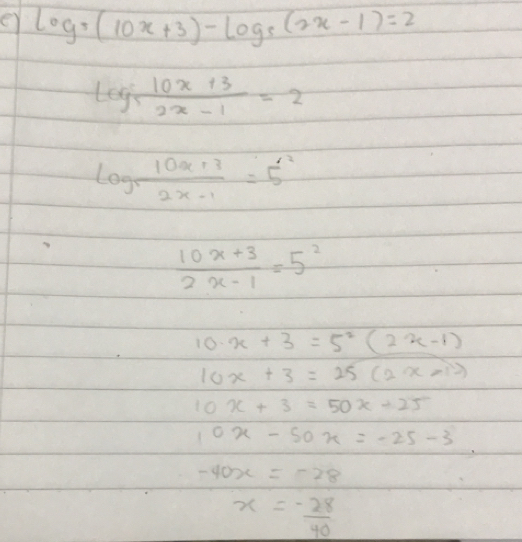 c) Log₅(10x+3)-Log₅(2x-1)=2
Log₅ (10x+3)/(2x-1) = 2
Log₅ (10x+3)/(2x-1) = 5²
(10x+3)/(2x-1) = 5²
10x + 3 = 5² (2x-1)
10x + 3 = 25 (2x-1)
10x + 3 = 50x - 25
10x - 50x = -25-3
-40x = -28
x = -28/40